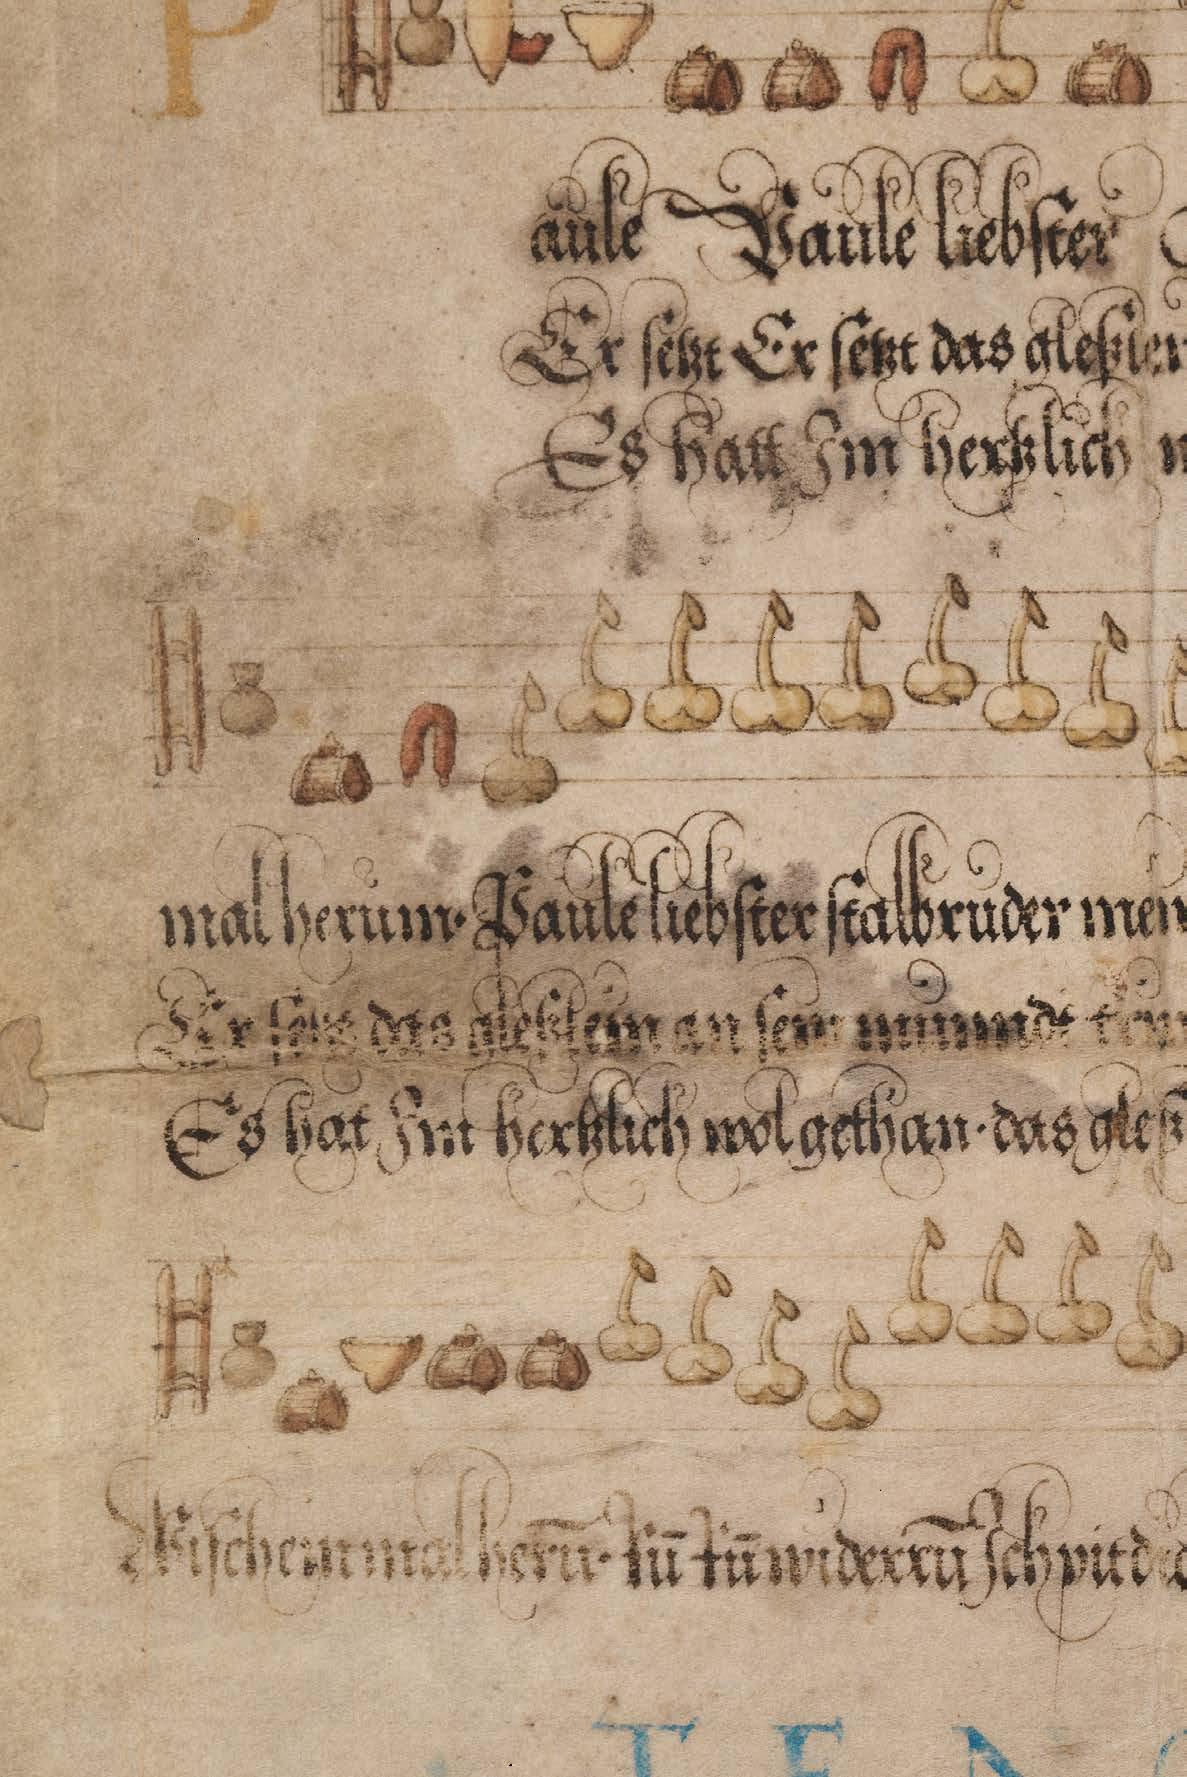 P
aule Paule liebster
Er setzt Er setzt das gleßlein
Es hatt Im hertzlich
mal herum· Paule liebster stalbruder mein
Er setz das gleßlein an sein mundt
Es hat Im hertzlich wol gethan· das gleß
Wisch ein mal herū· kū kū widerrū Ich pit dic
TENO